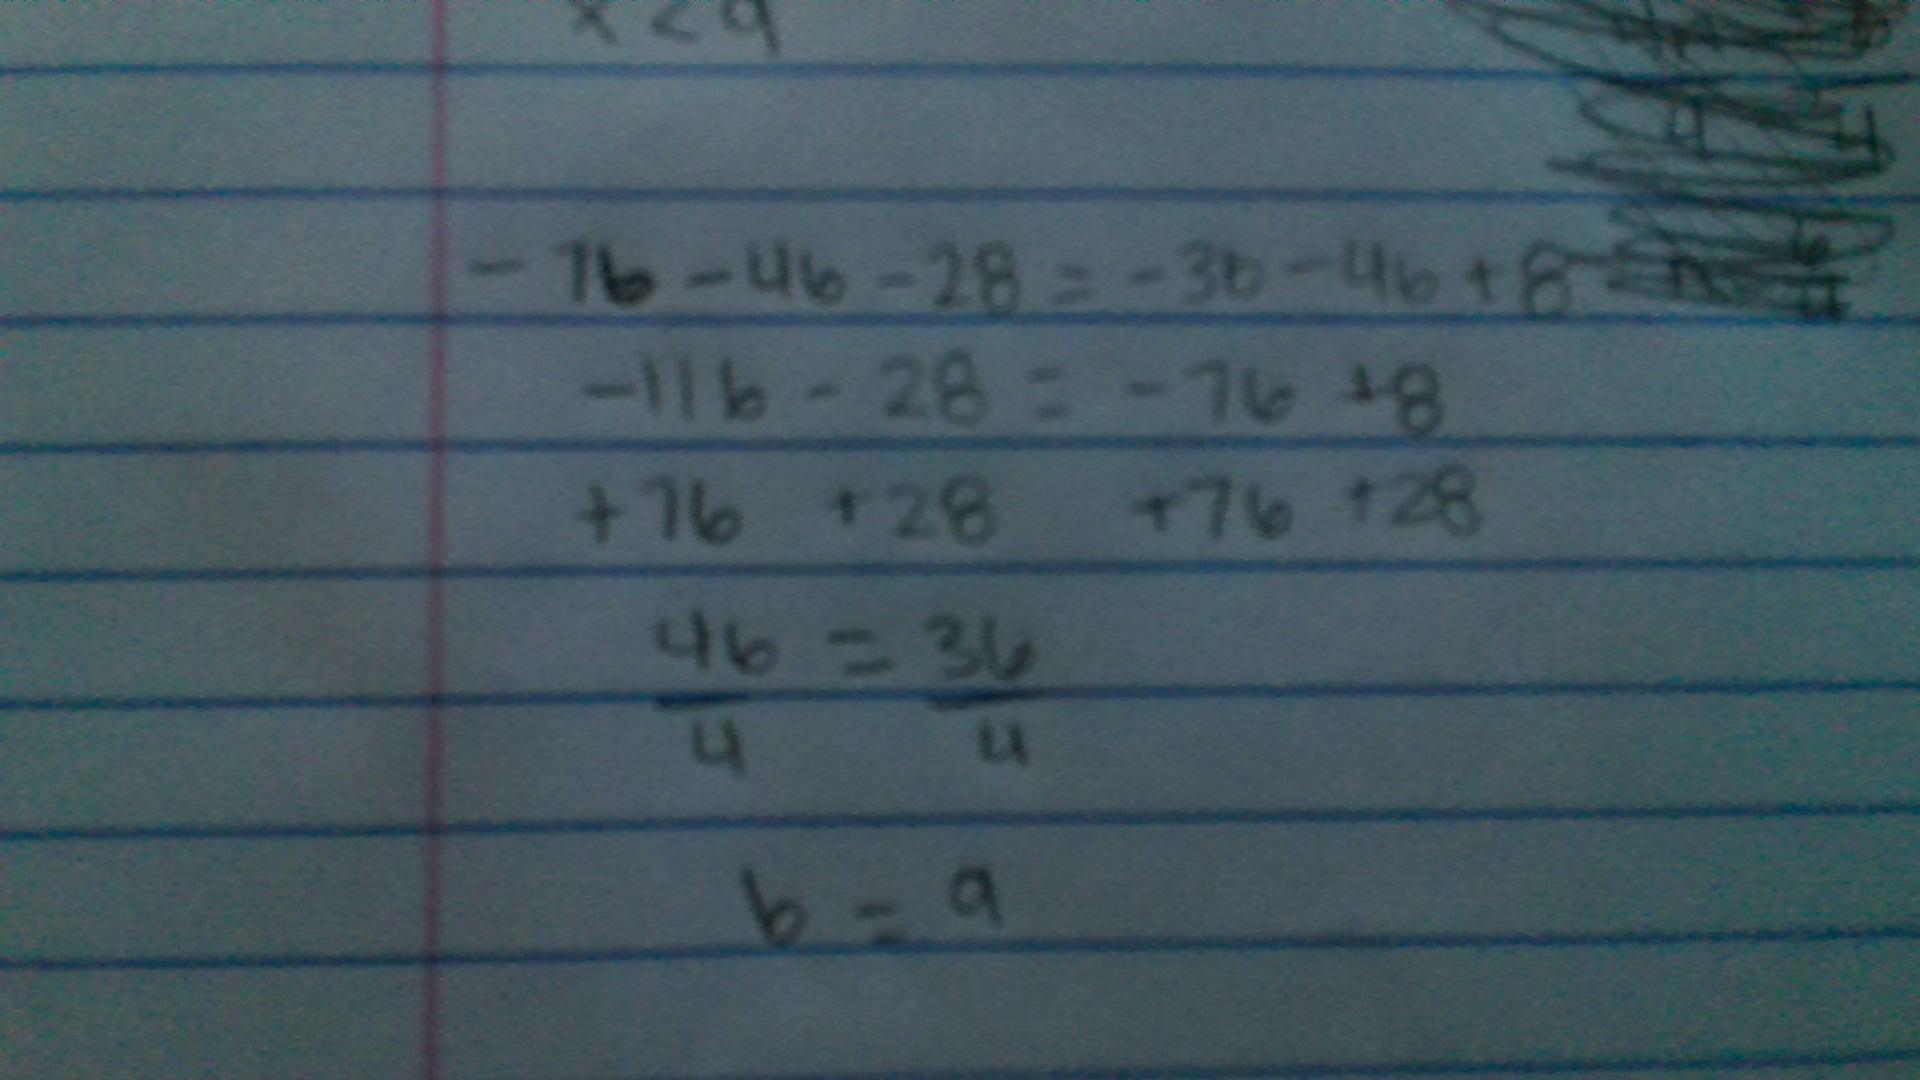 x < 9
- 7b - 4b - 28 = -3b - 4b + 8
-11b - 28 = -7b +8
+7b +28 +7b +28
4b = 36
4 4
b = 9